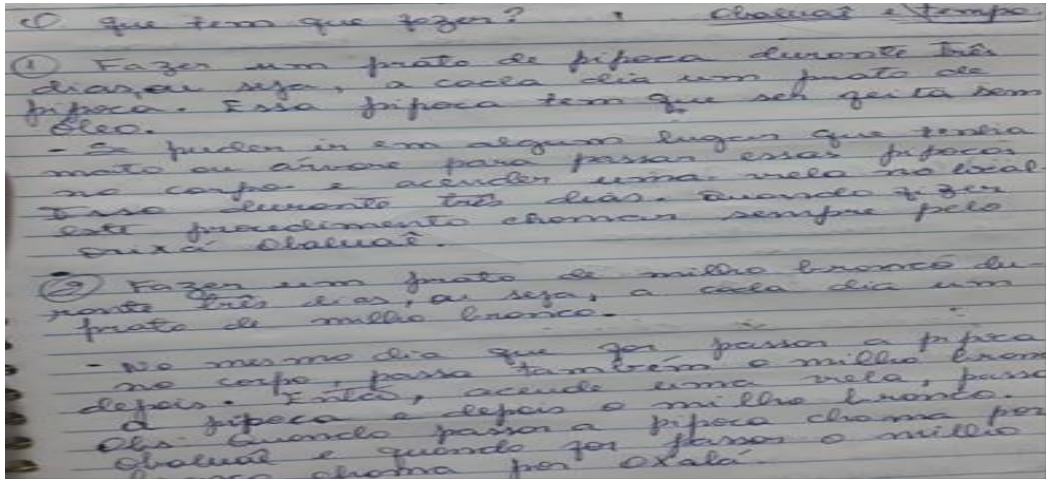 O que tem que fazer? . Obaluaê e Tempo.
① Fazer um prato de pipoca durante três
dias, ou seja, a cada dia um prato de
pipoca. Essa pipoca tem que ser feita sem
óleo.
- Se puder ir em algum lugar que tenha
mato ou árvore para passar essas pipocas
no corpo e acender uma vela no local.
Isso durante três dias. Quando fizer
este procedimento chamar sempre pelo
orixá Obaluaê.
② Fazer um prato de milho branco du-
rante três dias, ou seja, a cada dia um
prato de milho branco.
- No mesmo dia que for passar a pipoca
no corpo, passa também o milho bran
depois. Então, acende uma vela, passa
a pipoca e depois o milho branco.
Obs: Quando passar a pipoca chama por
Obaluaê e quando for passar o milho
branco chama por Oxalá.